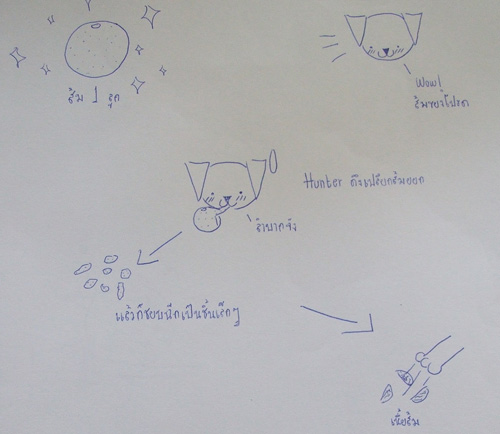 ส้ม 1 ลูก
Wow!
ส้มของโปรด
Hunter ดึงเปลือกส้มออก
ลำบากจัง
แล้วก็ชอบฉีกเป็นชิ้นเล็กๆ
เนื้อส้ม